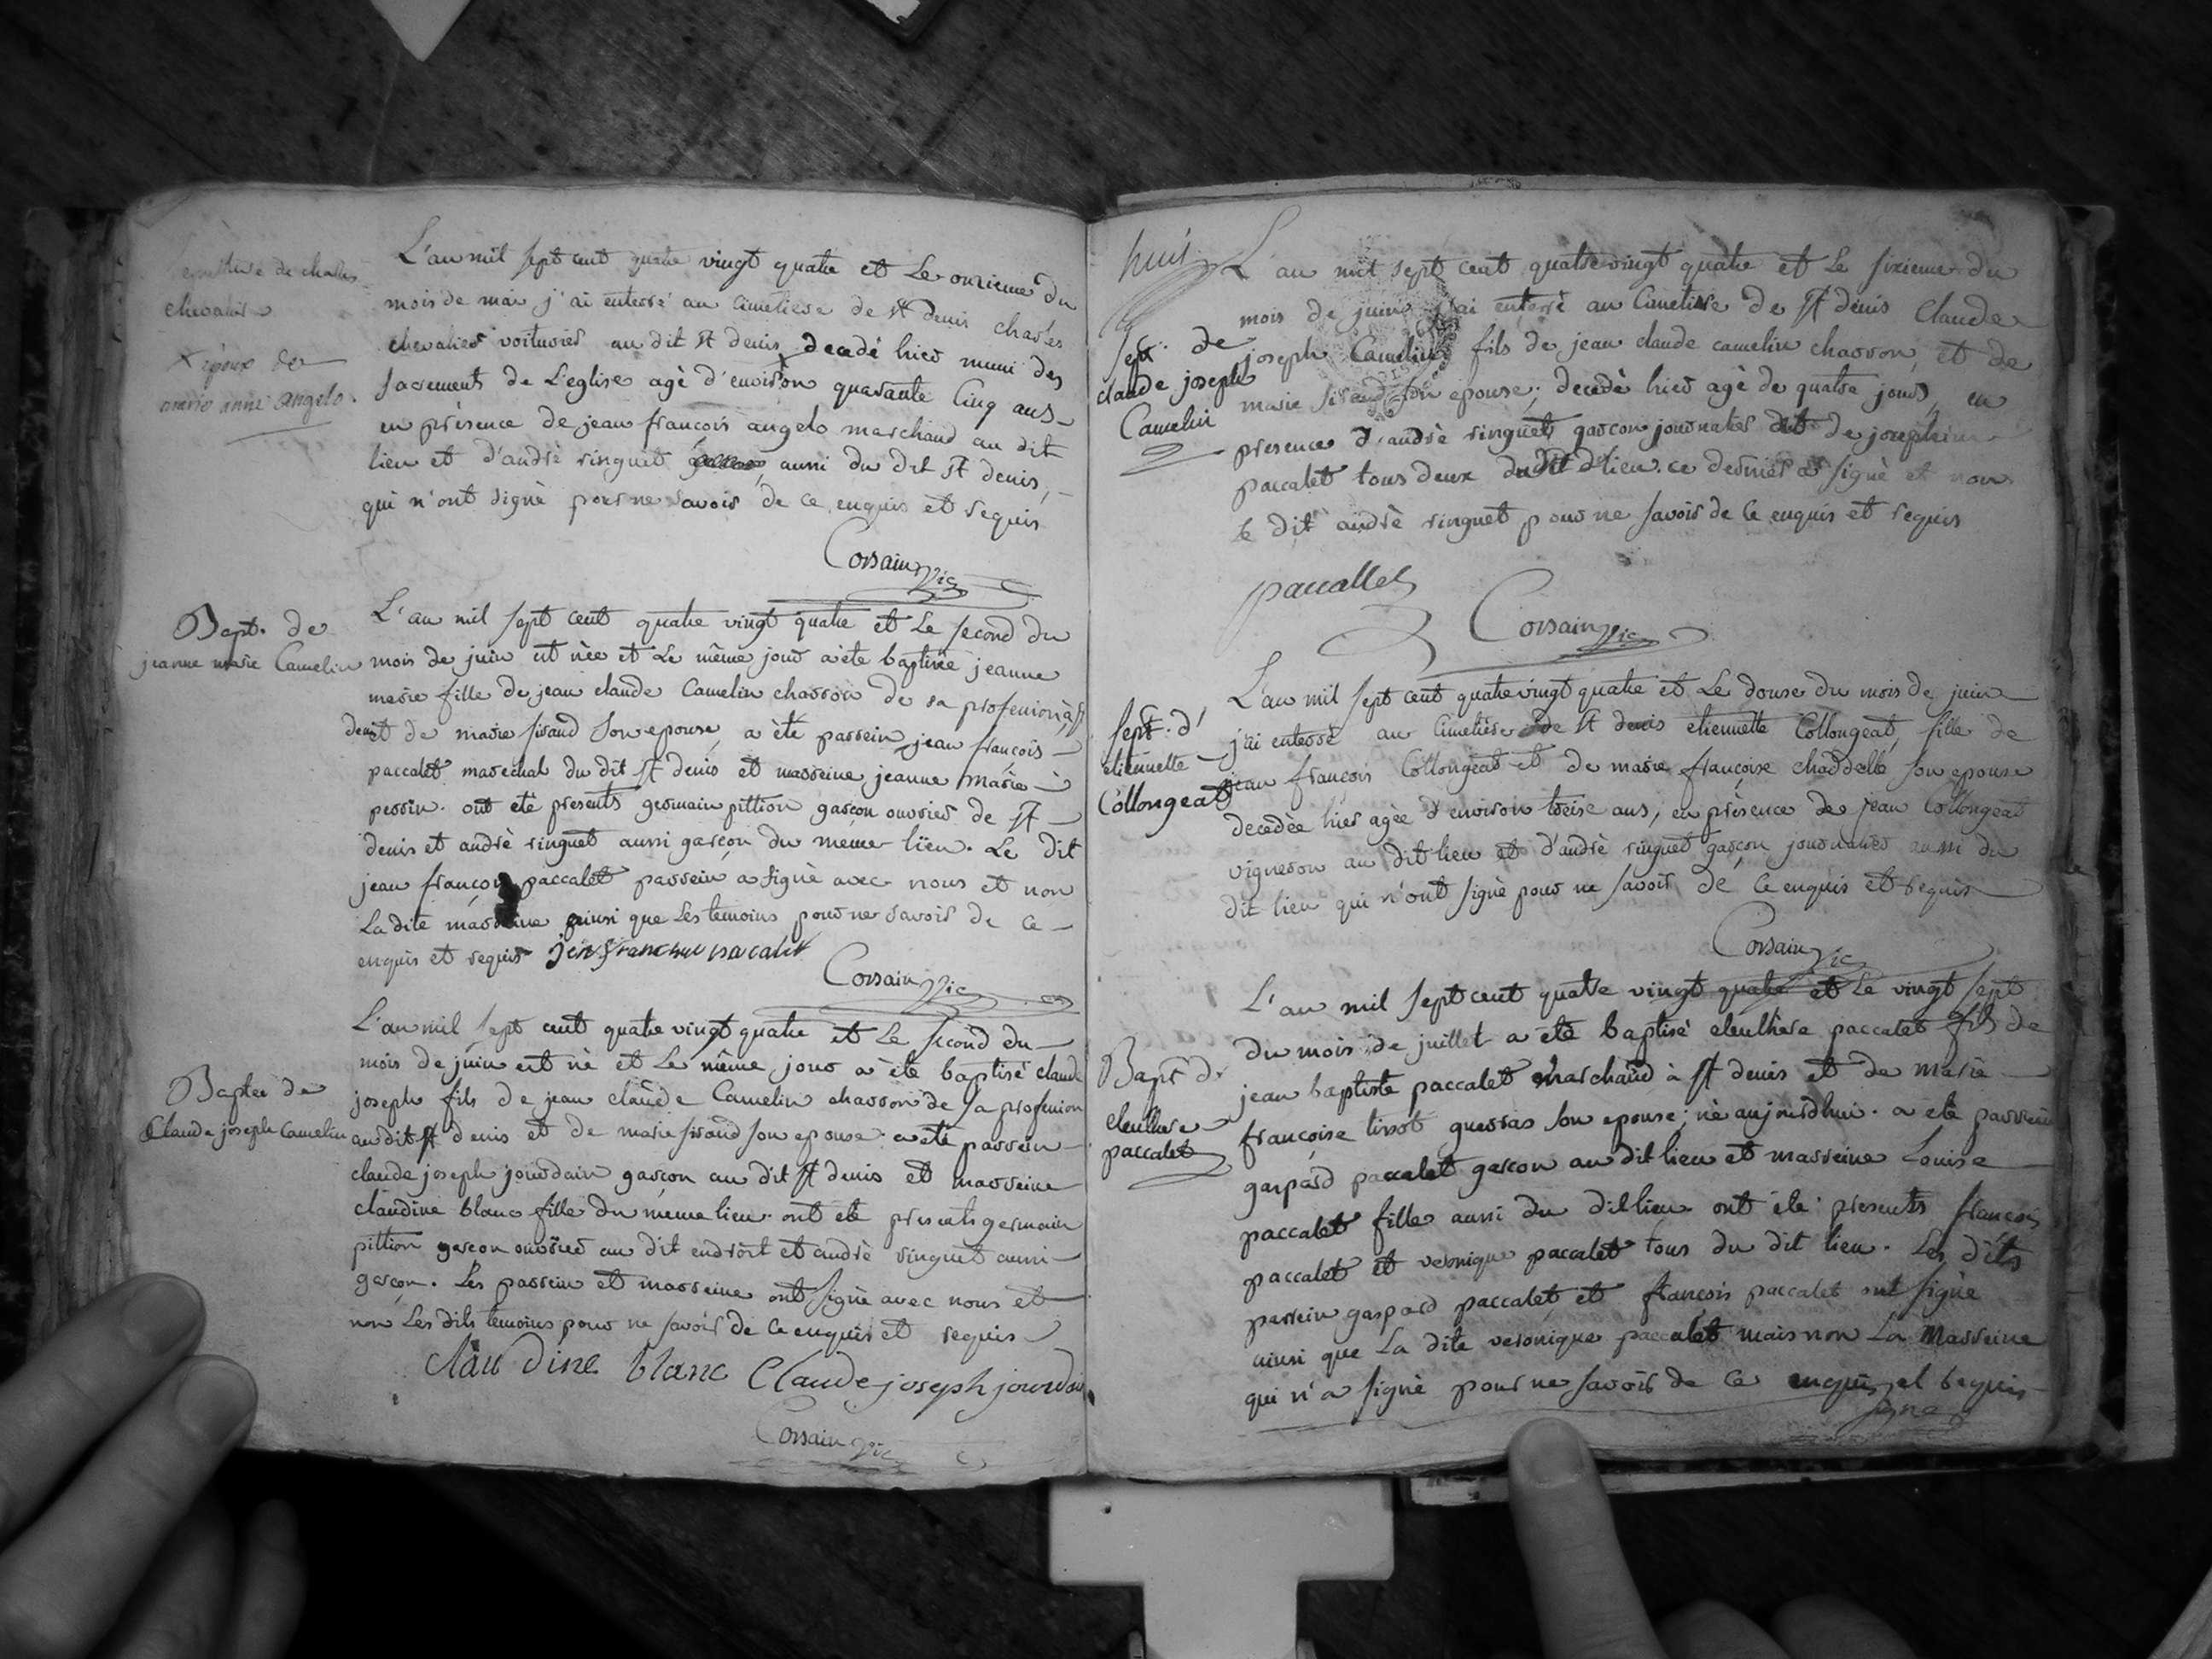 sepulture de charles
chevalier
X époux de
marie anne angelo.
L'an mil sept cent quatre vingt quatre et Le onzieme du
mois de mai j'ai enterré au cimetiere de st denis charles
chevalier voiturier au dit st denis decedé hier muni des
sacrements de L'eglise agè d'environ quarante cinq ans
en prèsence de jean francois angelo marchand au dit
lieu et d'andrè ringuet aussi du dit st denis,
qui n'ont signè pour ne savoir de ce enquis et requis
Corsain vic
Bapt. de
jeanne marie Camelin
L'an mil sept cent quatre vingt quatre et Le second du
mois de juin est nèe et Le même jour a ète baptisèe jeanne
marie fille de jean claude Camelin charron de sa profession à st
denis et de marie sirand son epouse, a ète parrein jean françois
paccalet marechal du dit st denis et marreine jeanne marie
perrin. ont etè presents germain pittion garçon ouvrier de st
denis et andrè ringuet aussi garçon du même lieu. Le dit
jean françois paccalet parrein a signè avec nous et non
La dite marreine ainsi que Les temoins pour ne savoir de ce
enquis et requis jean francois pacalet
Corsain vic
Baptee de
Claude joseph Camelin
L'an mil sept cent quatre vingt quatre et Le second du
mois de juin est nè et Le même jour a ète baptisé claude
joseph fils de jean claude Camelin charron de sa profession
au dit st denis et de marie sirand son epouse. a etè parrein
claude joseph jourdain garçon au dit st denis et marreine
claudine blanc fille du meme lieu. ont etè presents germain
pittion garcon ouvrier au dit endroit et andrè ringuet aussi
garçon. Les parrein et marreine ont signè avec nous et
non Les dits temoins pour ne savoir de ce enquis et requis
claudine blanc Claude joseph jourdain
Corsain vic
huit
sept. de
claude joseph
Camelin
L'an mil sept cent quatre vingt quatre et Le sixieme du
mois de juin j'ai enterrè au Cimetiere de st denis Claude
joseph Camelin fils de jean claude camelin charron et de
marie sirand son epouse, decedè hier agè de quatre jours, en
presence d'andrè ringuet garcon journalier et de joseph
paccalet tous deux du dit lieu. ce dernier a signè et non
le dit andrè ringuet pour ne savoir de ce enquis et requis
paccallet
Corsain vic
sept. d'
etiennette
Collongeat
L'an mil sept cent quatre vingt quatre et Le douse du mois de juin
j'ai enterrè au cimetière de st denis etiennette Collongeat, fille de
jean françois Collongeat et de marie françoise chaddelle son epouse
decedèe hier agèe d'environ treise ans, en prèsence de jean Collongeat
vigneron au dit lieu et d'andrè ringuet garçon journalier aussi du
dit lieu qui n'ont signè pour ne savoir de ce enquis et requis
Corsain vic
Bapt d'
eleuthere
paccalet
L'an mil sept cent quatre vingt quatre et Le vingt sept
du mois de juillet a été baptisé eleuthère paccalet fils de
jean baptiste paccalet marchand à st denis et de marie
françoise tissot guerras son epouse; nè aujourdhui. a ète parrein
gaspard paccalet garcon au dit lieu et marreine Louise
paccalet fille aussi du dit lieu ont été presents francois
paccalet et veronique paccalet tous du dit lieu. Les dits
parrein gaspard paccalet et francois paccalet ont signè
ainsi que La dite veronique paccalet mais non La Marreine
qui n'a signè pour ne savoir de ce enquis et requis
signe